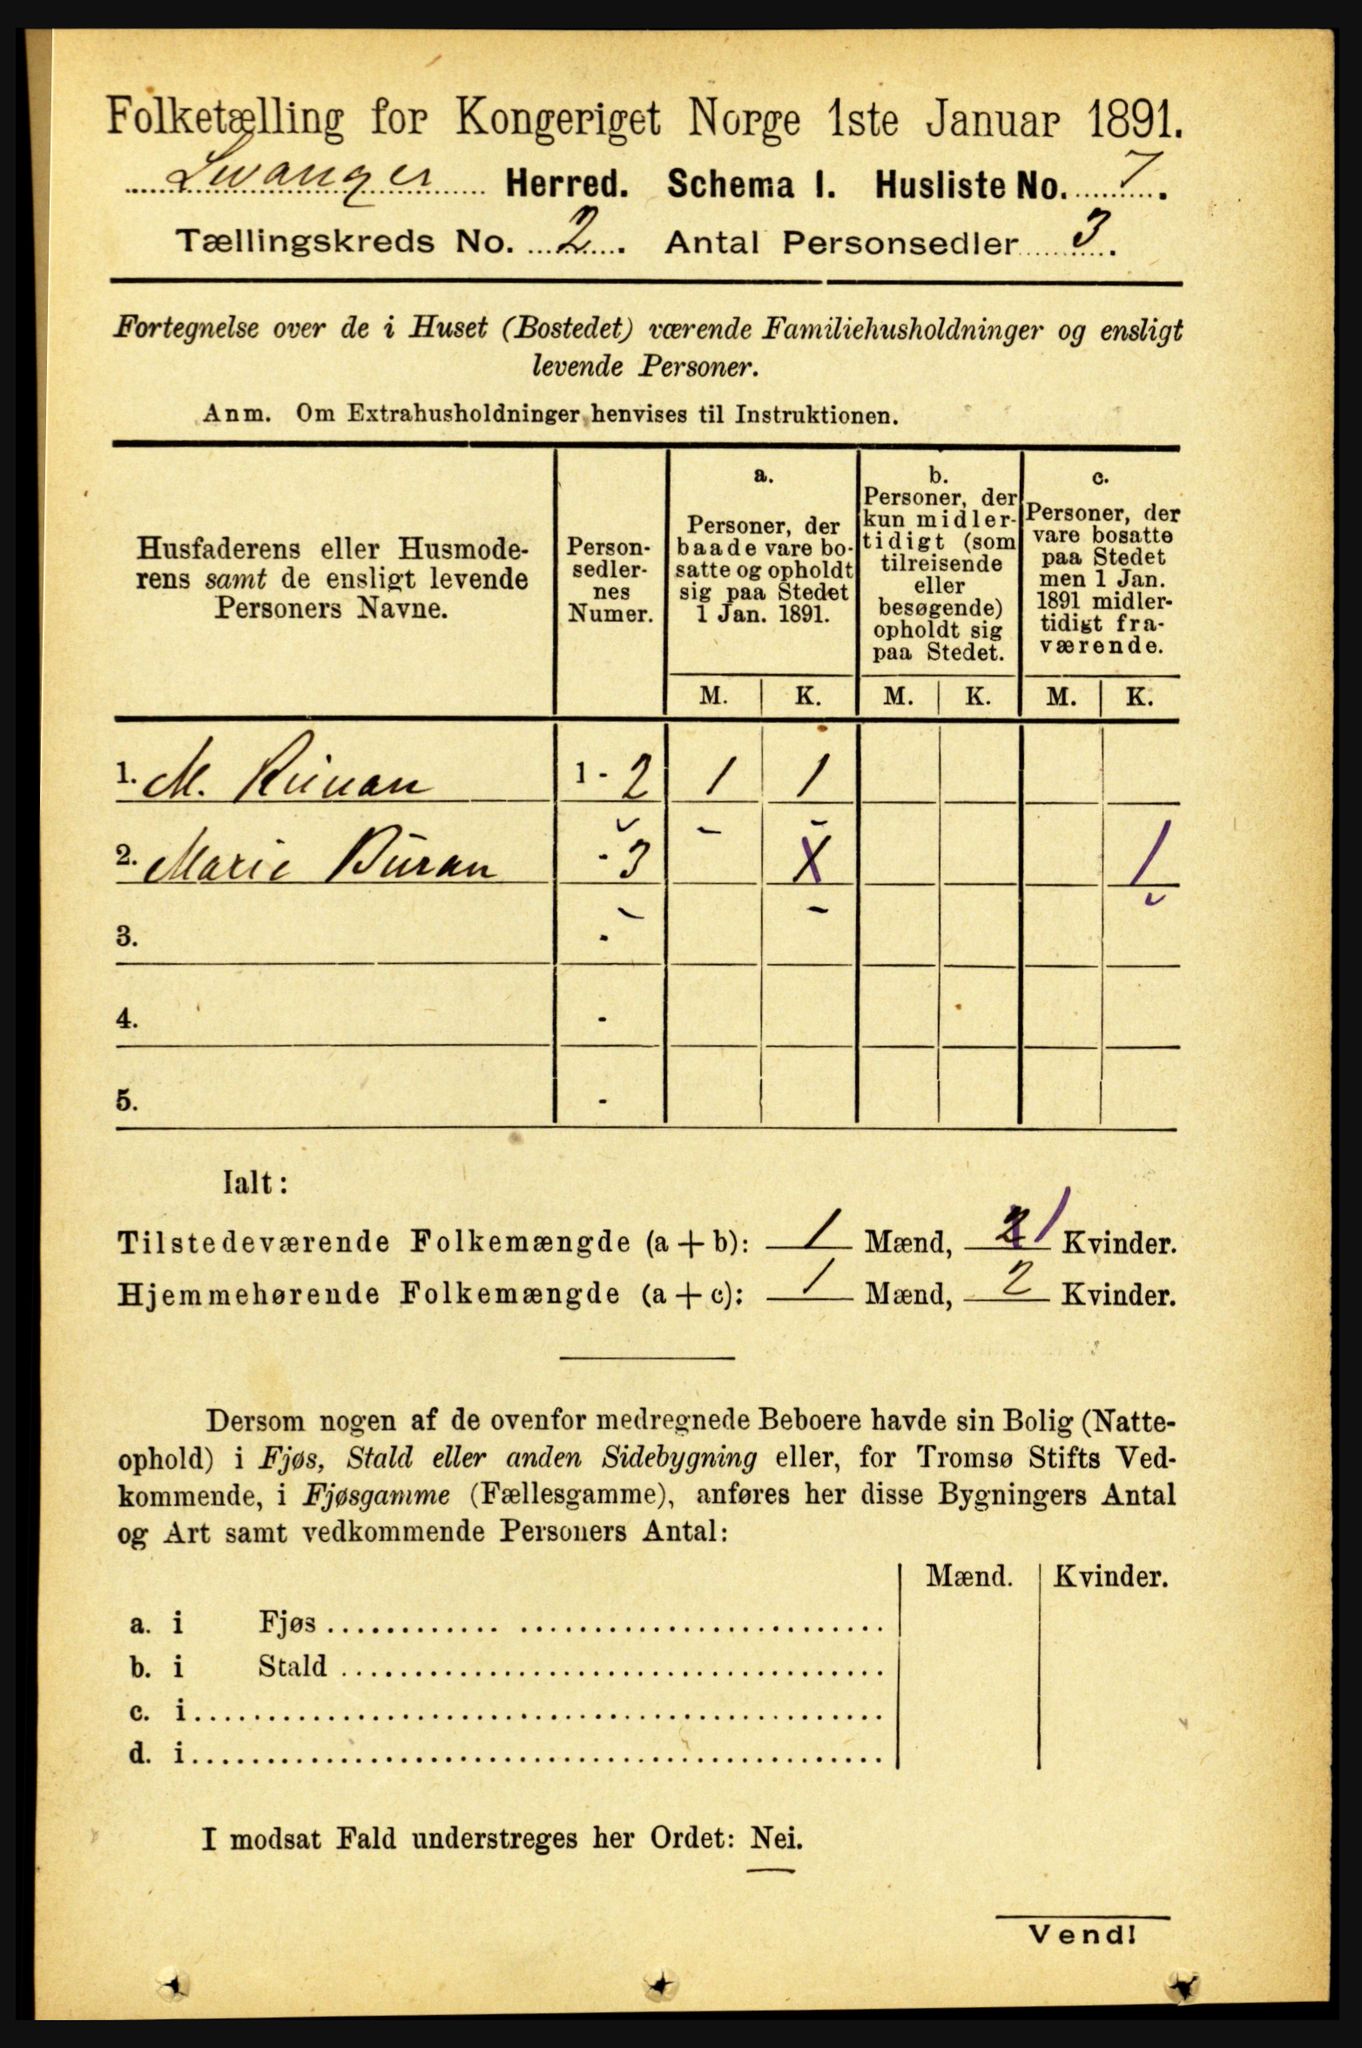 Folketælling for Kongeriget Norge 1ste Januar 1891.
Levanger Herred. Schema 1. Husliste No. 7.
Tællingskreds No. 2. Antal Personsedler 3.
Fortegnelse over de i Huset (Bostedet) værende Familiehusholdninger og ensligt
levende Personer.
Anm. Om Extrahusholdninger henvises til Instruktionen.
Husfaderens eller Husmode-
rens samt de ensligt levende
Personers Navne.
Person-
sedler-
nes
Numer.
a.
Personer, der
baade vare bo-
satte og opholdt
sig paa Stedet
1 Jan. 1891.
b.
Personer, der
kun midler-
tidigt (som
tilreisende
eller
besøgende)
opholdt sig
paa Stedet.
c.
Personer, der
vare bosatte
paa Stedet
men 1 Jan.
1891 midler-
tidigt fra-
værende.
M. K. M. K. M. K.
1. M. 1 - 2 1 1
2. Marie Buran - 3 X 1
3. -
4. -
5. -
Ialt:
Tilstedeværende Folkemængde (a + b): 1 Mænd, 2 1 Kvinder.
Hjemmehørende Folkemængde (a + c): 1 Mænd, 2 Kvinder.
Dersom nogen af de ovenfor medregnede Beboere havde sin Bolig (Natte-
ophold) i Fjøs, Stald eller anden Sidebygning eller, for Tromsø Stifts Ved-
kommende, i Fjøsgamme (Fællesgamme), anføres her disse Bygningers Antal
og Art samt vedkommende Personers Antal:
Mænd. Kvinder.
a. i Fjøs
b. i Stald
c. i
d. i
I modsat Fald understreges her Ordet: Nei.
Vend!